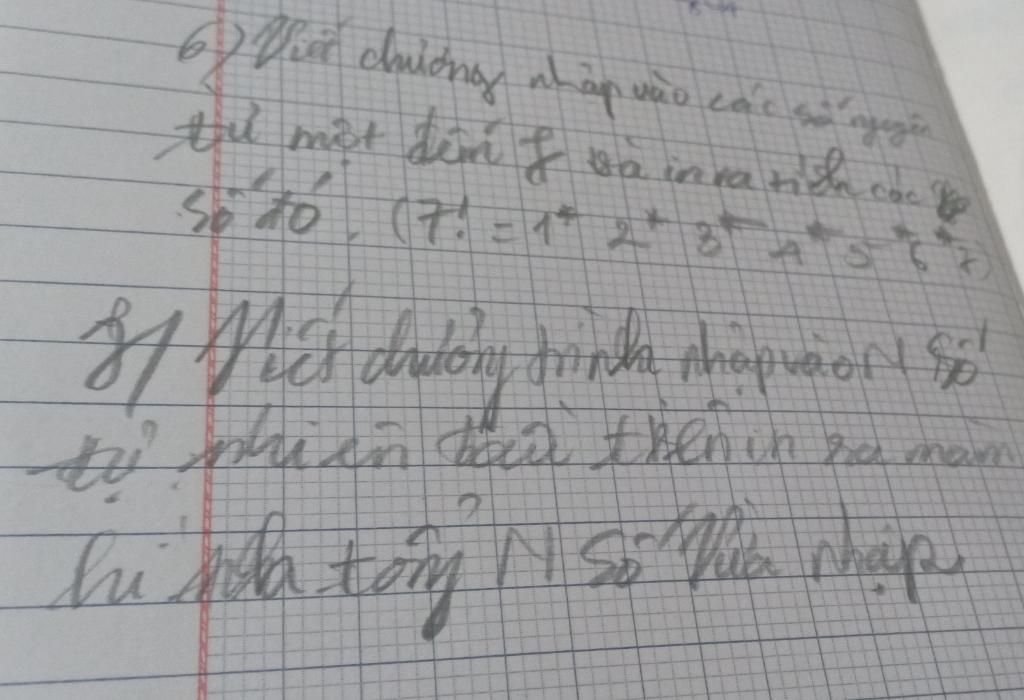 6) Viết chương nhập vào các số nguyên
từ một đến 7 và in ra tích các
số đó. (7! = 1* 2* 3* 4* 5* 6* 7)
8) Viết chương trình nhập vào N số
tự nhiên đầu tiên in ra màn
hình tổng N số vừa nhập